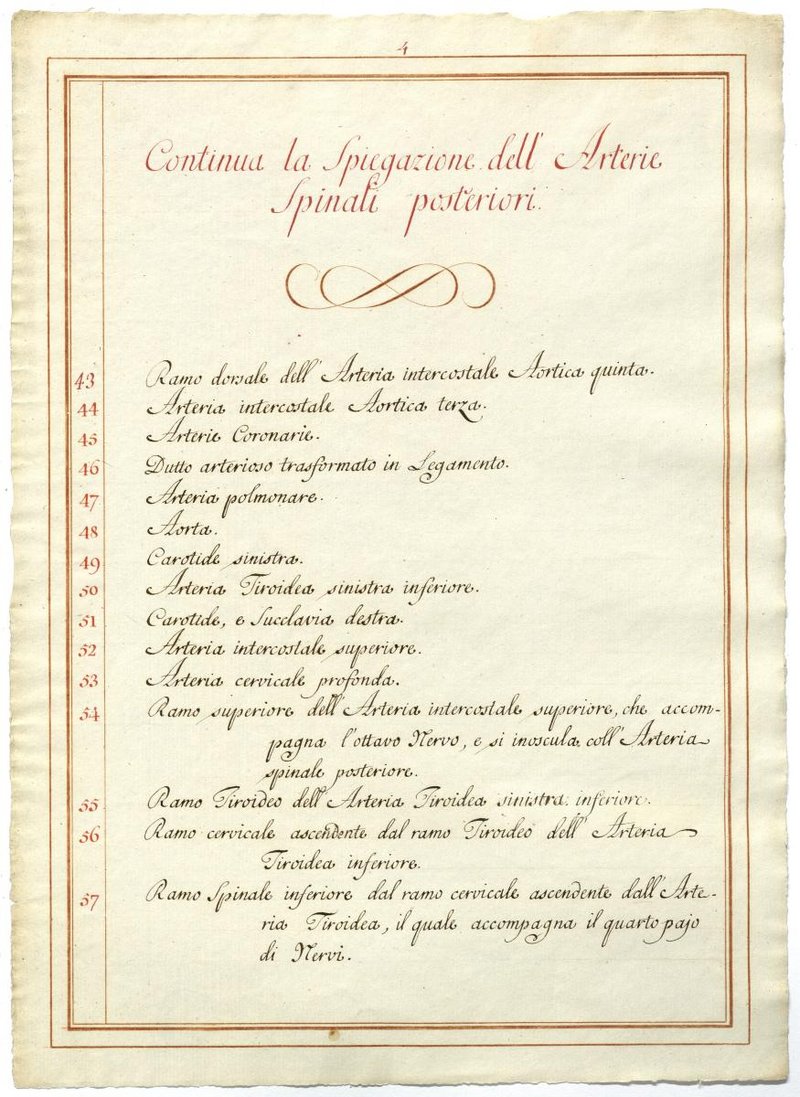 4
Continua la Spiegazione dell' Arterie
Spinali posteriori.
43 Ramo dorsale dell' Arteria intercostale Aortica quinta.
44 Arteria intercostale Aortica terza.
45 Arterie Coronarie.
46 Dutto arterioso trasformato in Legamento.
47 Arteria polmonare.
48 Aorta.
49 Carotide sinistra.
50 Arteria Tiroidea sinistra inferiore.
51 Carotide, e Succlavia destra.
52 Arteria intercostale superiore.
53 Arteria cervicale profonda.
54 Ramo superiore dell' Arteria intercostale superiore, che accom-
pagna l'ottavo Nervo, e si inoscula coll' Arteria
spinale posteriore.
55 Ramo Tiroideo dell' Arteria Tiroidea sinistra inferiore.
56 Ramo cervicale ascendente dal ramo Tiroideo dell' Arteria
Tiroidea inferiore.
57 Ramo Spinale inferiore dal ramo cervicale ascendente dall' Arte-
ria Tiroidea, il quale accompagna il quarto pajo
di Nervi.